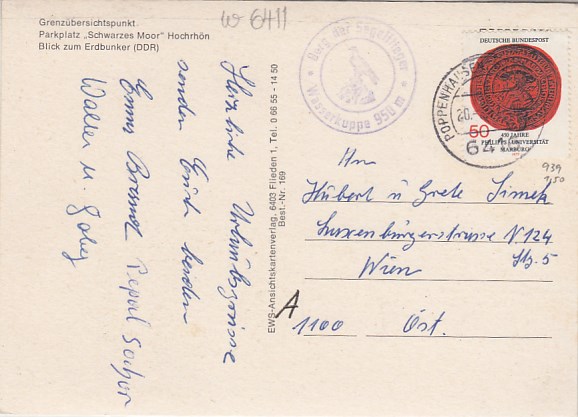 Grenzübersichtspunkt
Parkplatz „Schwarzes Moor" Hochrhön
Blick zum Erdbunker (DDR)
W 6411
Herzliche Urlaubsgrüsse
senden Euch beiden
Walter u.
EWS-Ansichtskartenverlag, 6403 Flieden 1, Tel. 0 66 55 - 14 50
Best.-Nr. 169
Berg der Segelflieger
Wasserkuppe 950 m
POPPENHAUSEN
20.
64
DEUTSCHE BUNDESPOST
50
450 JAHRE
PHILIPPS-UNIVERSITÄT
MARBURG
939
1,50
An
Hubert u Grete Simek
Luxenburgerstrasse N 124
Stg. 5
Wien
A
1100 Öst.